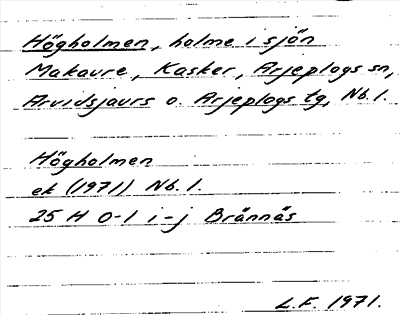 Högholmen, holme i sjön
Makaure, Kasker, Arjeplogs sn,
Arvidsjaurs o. Arjeplogs tg, Nb.l.
Högholmen
ek (1971) Nb.l.
25 H 0-1 i-j Brännäs
L.F. 1971.